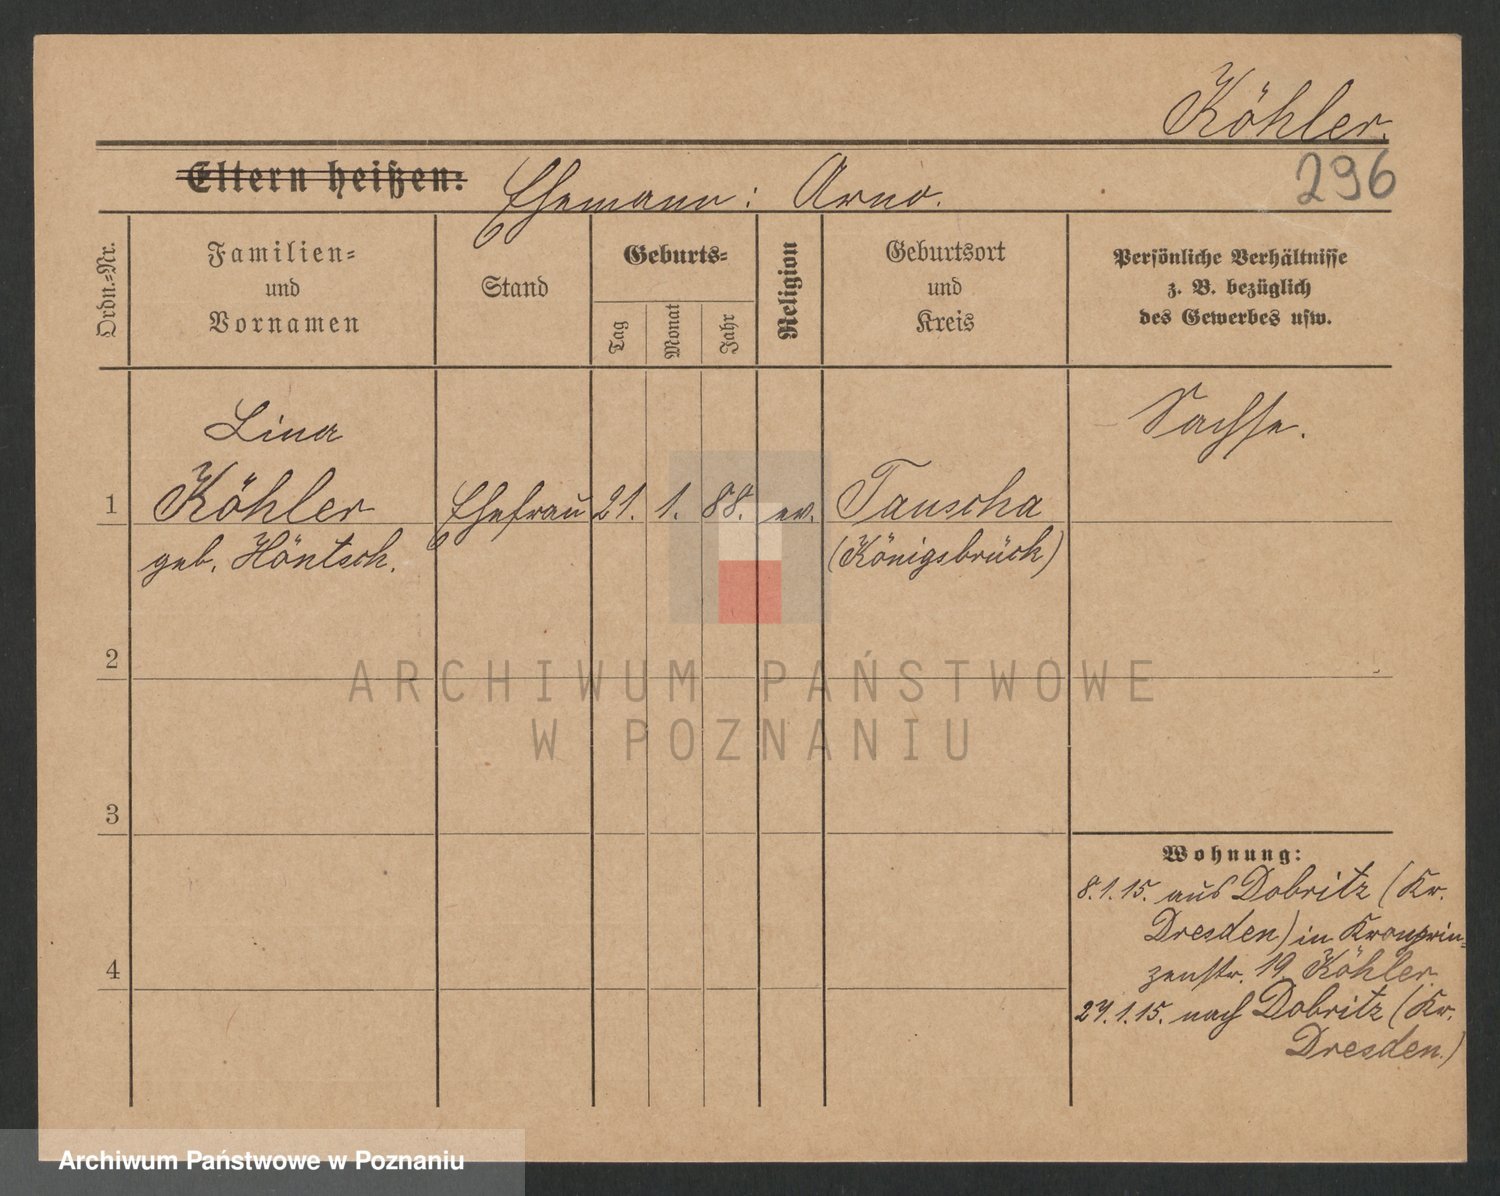 Köhler.
296
Eltern heißen: Ehemann: Arno.
Ordn.=Nr.
Familien=
und
Vornamen
Stand
Geburts=
Tag
Monat
Jahr
Religion
Geburtsort
und
Kreis
Persönliche Verhältnisse
z. B. bezüglich
des Gewerbes usw.
Lina
Sachse.
1 Köhler Ehefrau 21. 1. 88. ev. Tauscha
geb. Höntsch. (Königsbrück)
2
ARCHIWUM PAŃSTWOWE
W POZNANIU
3
Wohnung:
8.1.15. aus Dobritz (Kr.
Dresden) in Kronprin=
zenstr. 19 Köhler.
4
27.1.15. nach Dobritz (Kr.
Dresden.)
Archiwum Państwowe w Poznaniu